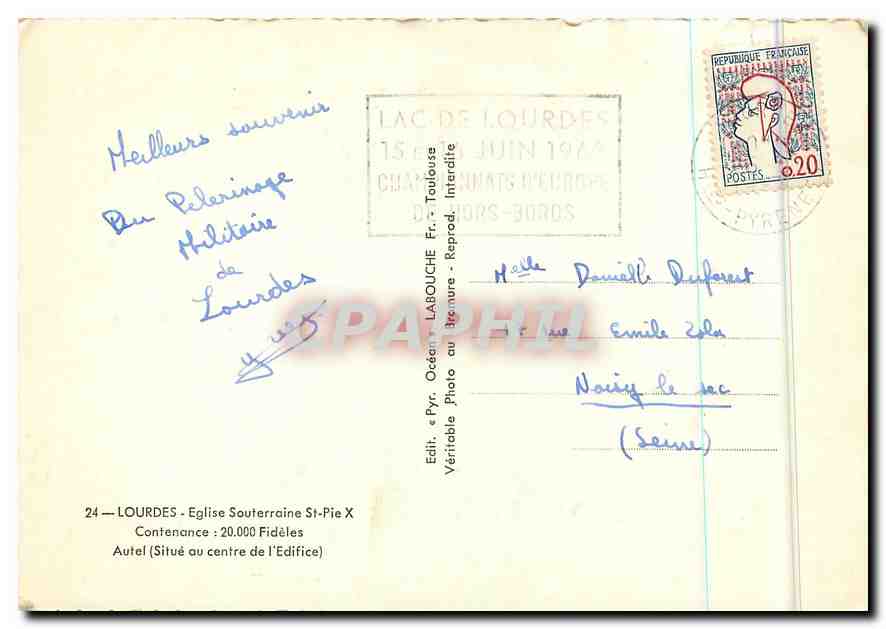 Meilleurs souvenir
Du Pelerinage
Militaire
de
Lourdes
24 — LOURDES - Eglise Souterraine St-Pie X
Contenance : 20.000 Fidèles
Autel (Situé au centre de l'Edifice)
Edit. « Pyr. Océan » LABOUCHE Fr. - Toulouse
Véritable Photo au Bromure - Reprod. Interdite
LAC DE LOURDES
JUIN
CHAMPIONNATS D'EUROPE
DE HORS-BORDS
REPUBLIQUE FRANÇAISE
POSTES
0,20
PYRENEES
CPAPHIL
Melle Danielle Duforest
rue Emile Zola
Noisy le sec
(Seine)